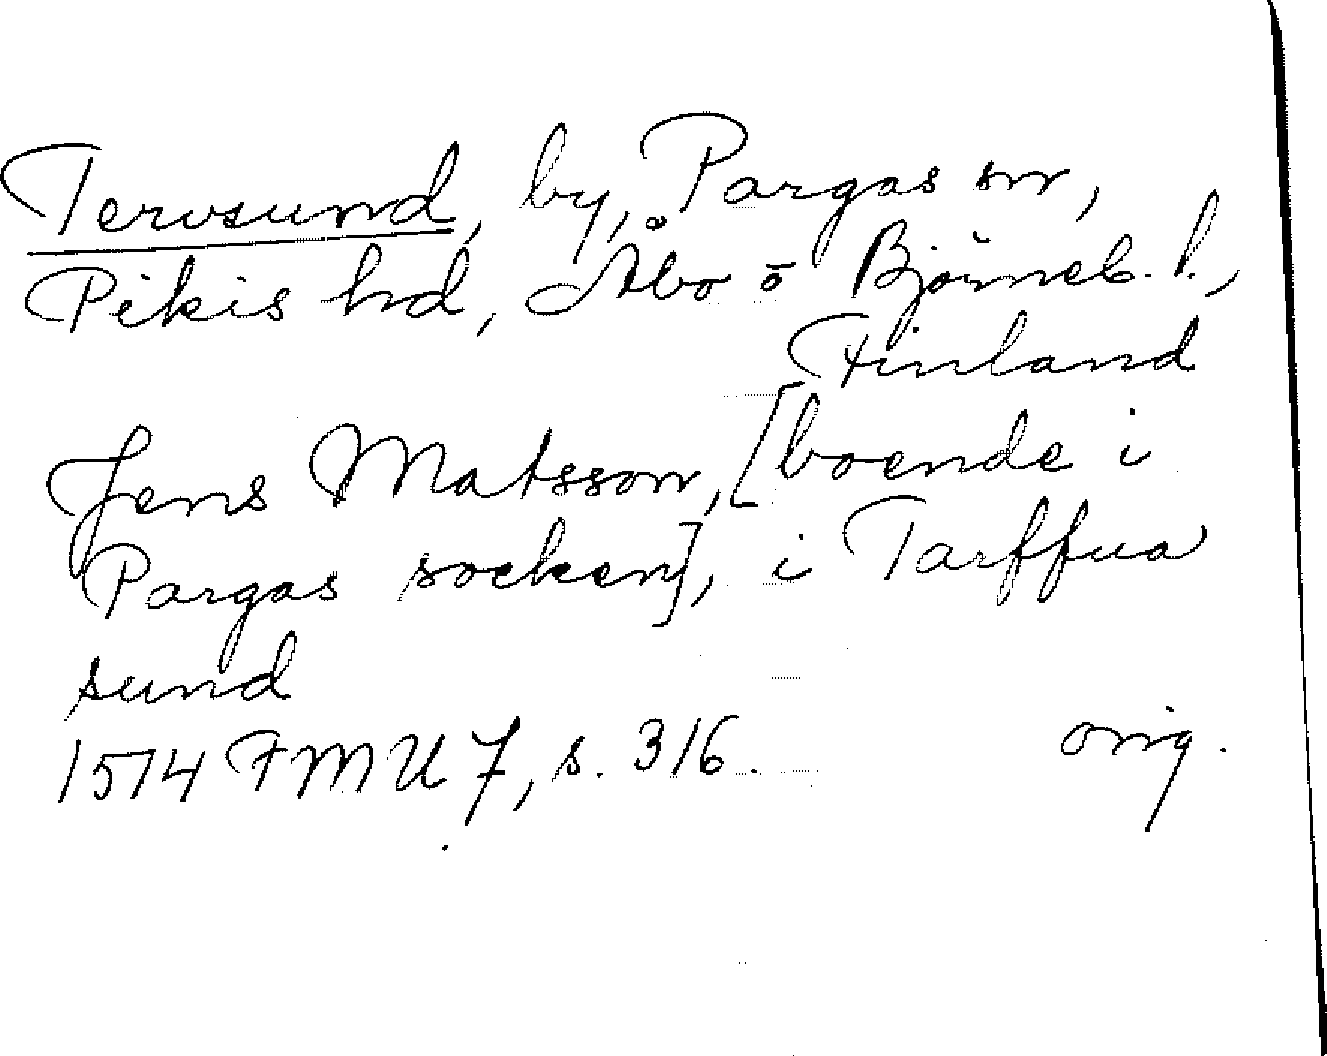 Tervsund, by, Pargas sn,
Pikis hd, Åbo o Björneb. l.,
Finland
Jens Matsson, [boende i
Pargas socken], i Tarffua
sund
1514 FMU 7, s. 316. orig.